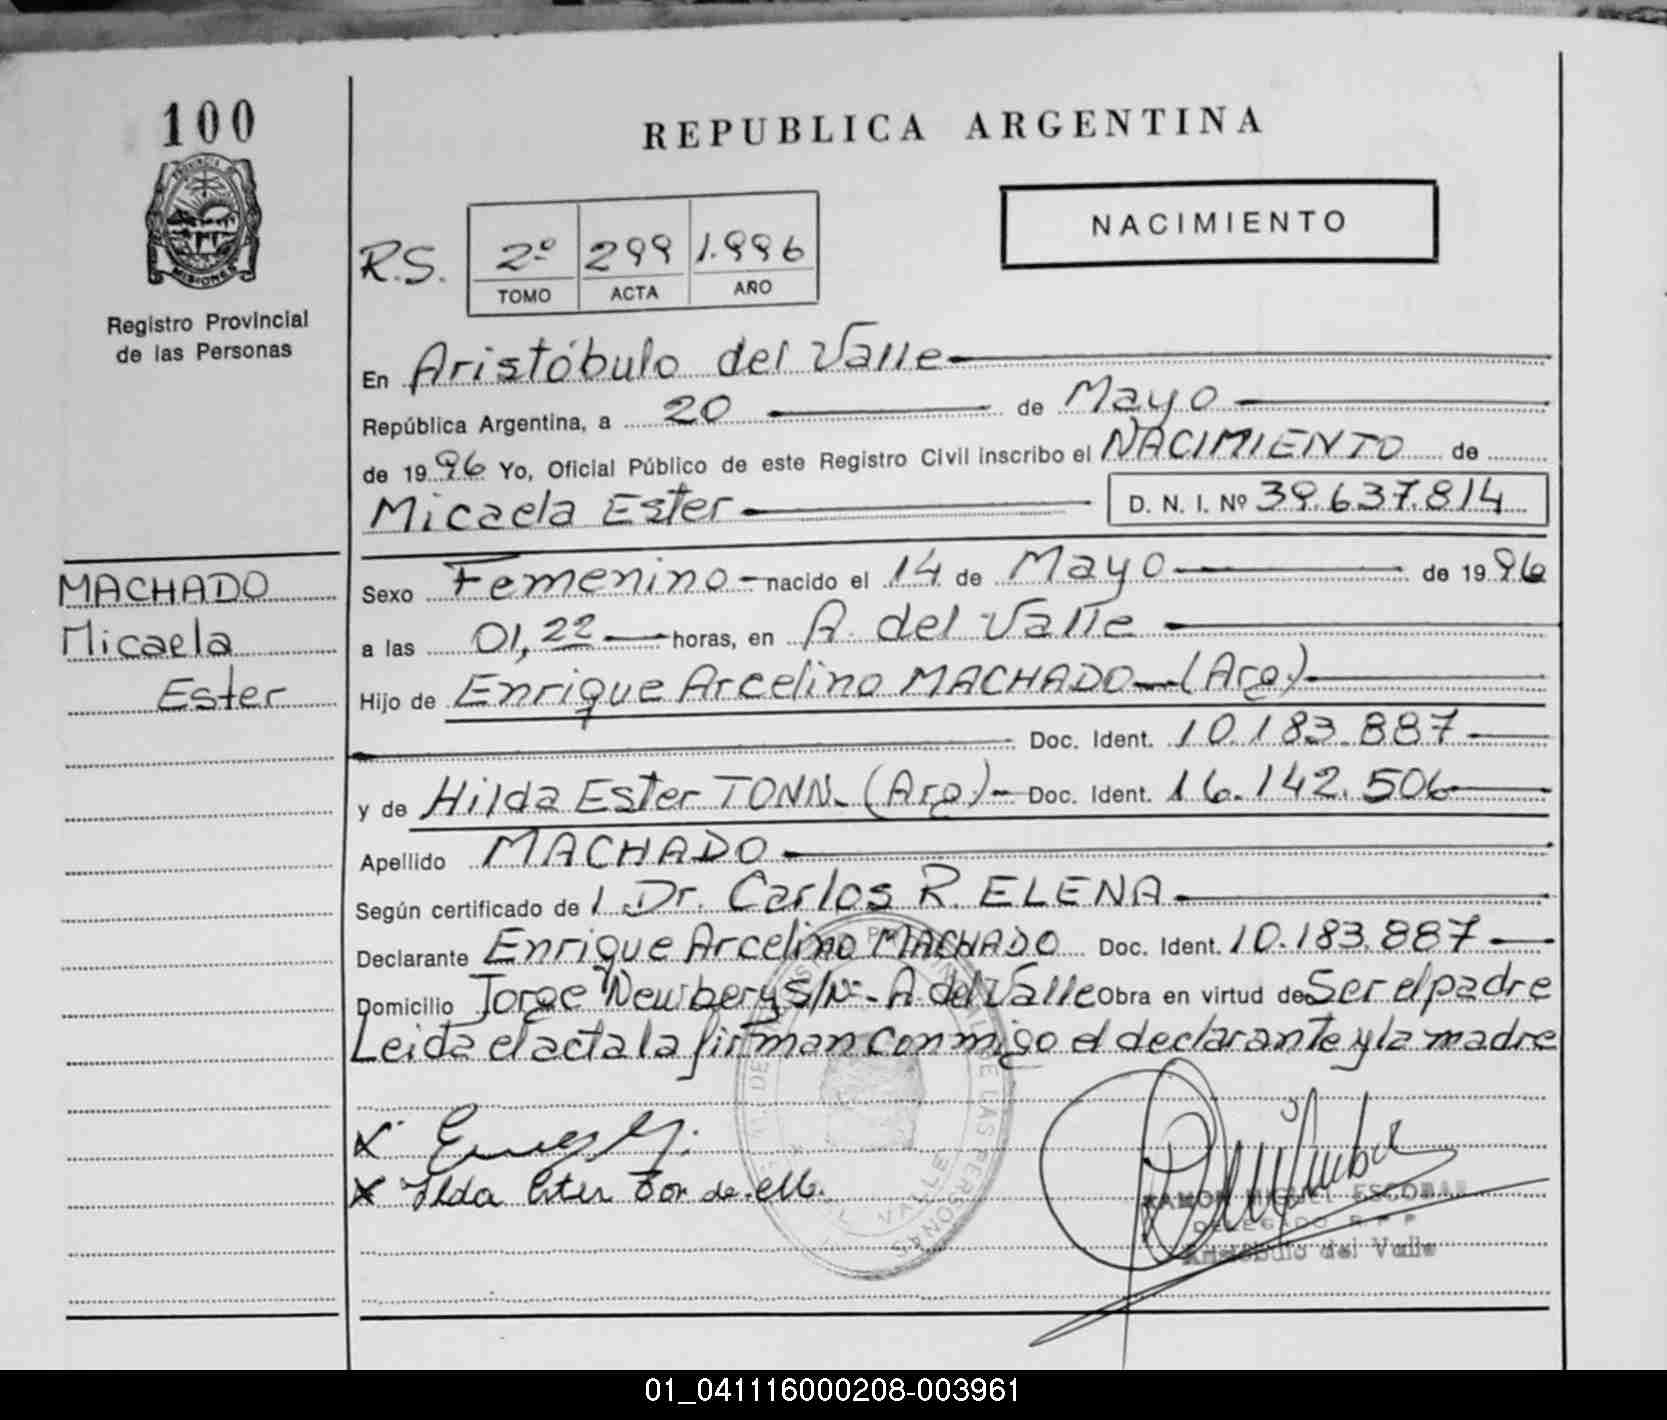 100
PROVINCIA DE
MISIONES
Registro Provincial
de las Personas
MACHADO
Micaela
Ester
REPUBLICA ARGENTINA
NACIMIENTO
R.S. 2º 299 1.996
TOMO ACTA AÑO
En Aristóbulo del Valle
República Argentina, a 20 de Mayo
de 1996 Yo, Oficial Público de este Registro Civil inscribo el NACIMIENTO de
Micaela Ester D. N. I. Nº 39.637.814
Sexo Femenino nacido el 14 de Mayo de 1996
a las 01,22 horas, en A. del Valle
Hijo de Enrique Arcelino MACHADO (Arg.)
Doc. Ident. 10.183.887
y de Hilda Ester TONN. (Arg.) Doc. Ident. 16.142.506
Apellido MACHADO
Según certificado de l Dr. Carlos R. ELENA
Declarante Enrique Arcelino MACHADO Doc. Ident. 10.183.887
Domicilio Jorge Newbery S/Nº - A. del Valle Obra en virtud de Ser el padre
Leida el acta la firman conmigo el declarante y la madre
X
X Ilda Ester de M.
RAMON MIGUEL ESCOBAR
DELEGADO R.P.P.
Aristóbulo del Valle
DE LAS PERSONAS
VALLE
01_041116000208-003961